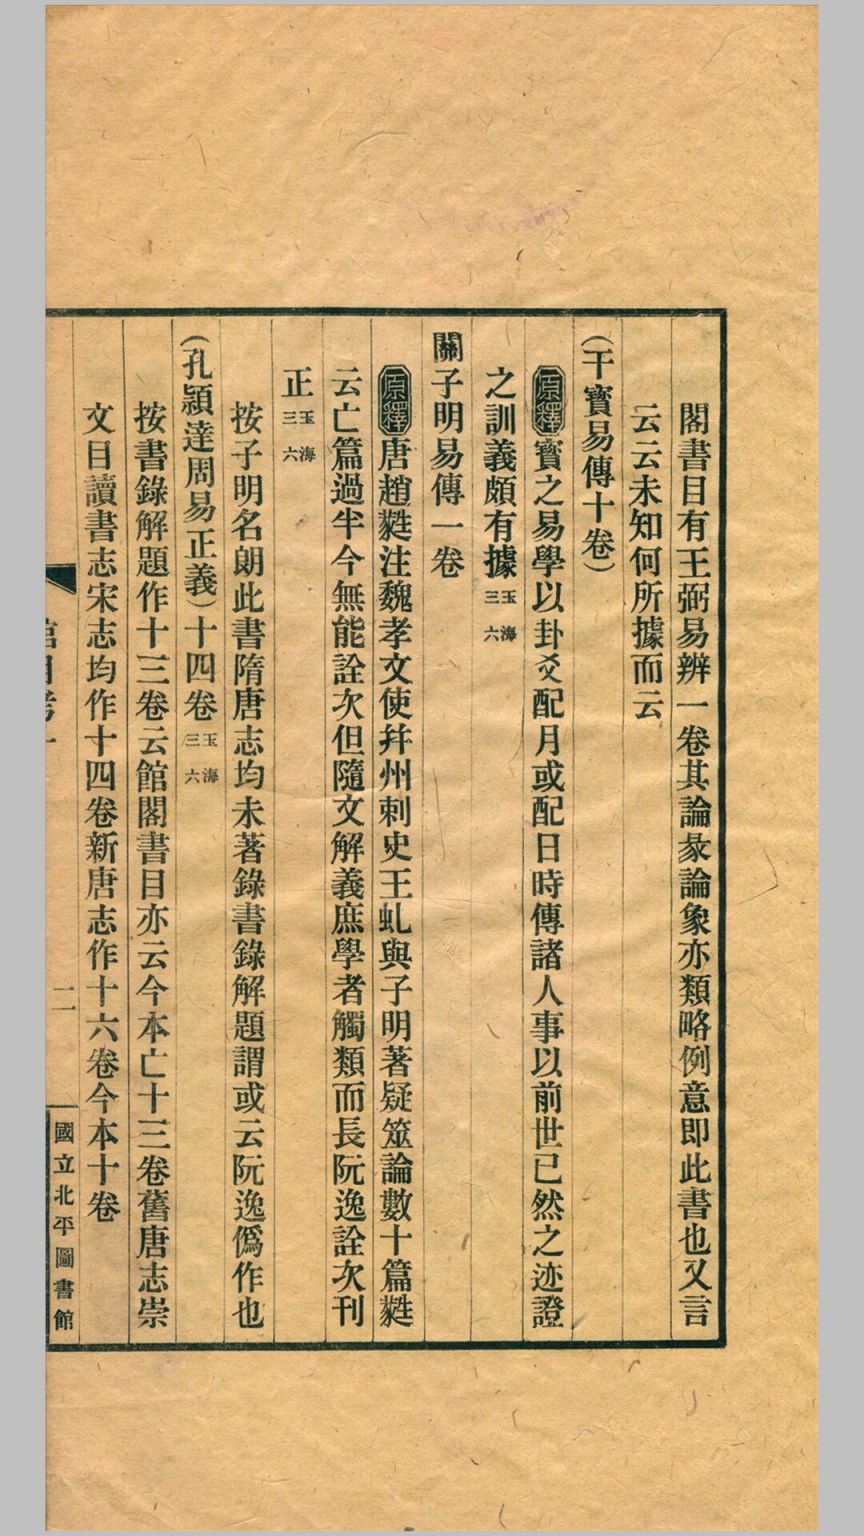 閣書目有王弼易辨一卷其論彖論象亦類略例意即此書也又言
云云未知何所據而云
(干寶易傳十卷)
原釋寶之易學以卦爻配月或配日時傳諸人事以前世已然之迹證
之訓義頗有據玉海三六
關子明易傳一卷
原釋唐趙蕤注魏孝文使幷州刺史王虬與子明著疑筮論數十篇蕤
云亡篇過半今無能詮次但隨文解義庶學者觸類而長阮逸詮次刊
正玉海三六
按子明名朗此書隋唐志均未著錄書錄解題謂或云阮逸僞作也
(孔穎達周易正義)十四卷玉海三六
按書錄解題作十三卷云館閣書目亦云今本亡十三卷舊唐志崇
文目讀書志宋志均作十四卷新唐志作十六卷今本十卷
二
國立北平圖書館